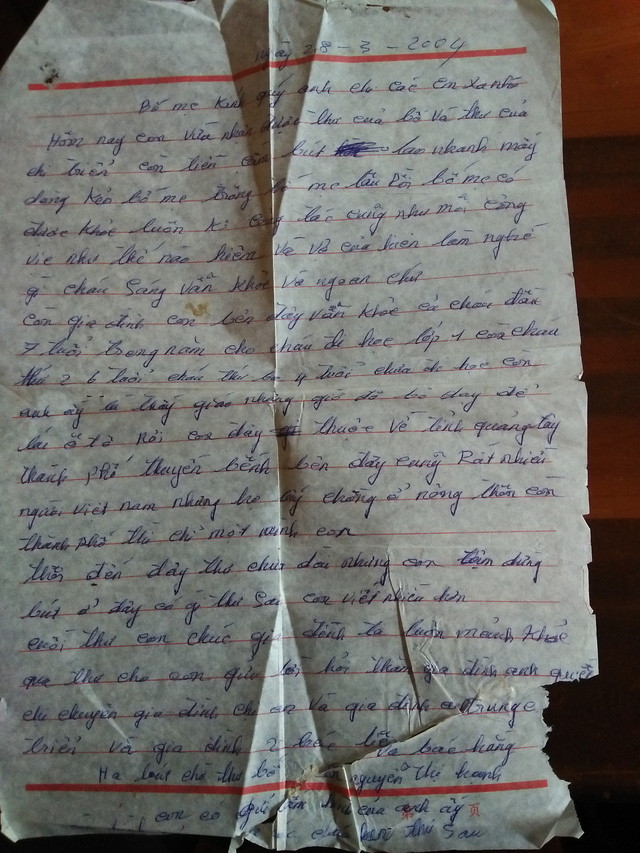 ngày 28 - 3 - 2004
Bố mẹ Kính quý anh chị các em xa nhớ
Hôm nay con vừa nhận được thư của bố và thư của
chị triển con liền cầm bút lao nhanh mấy
dòng kẻo bố mẹ trông bố mẹ lâu rồi bố mẹ có
được khỏe luôn Kỉ công tác cũng như mỗi công
viẹ như thế nào hiếm và vợ của hiên làm nghề
gì cháu Sáng vẫn khỏe và ngoan chứ
còn gia đình con bên đây vẫn khỏe cả cháu đầu
7 tuổi trong năm cho cháu đi học lớp 1 con cháu
thứ 2 6 tuổi cháu thứ ba 4 tuổi chưa đi học còn
anh ấy là thầy giáo nhưng giờ đã bỏ dạy để
lái ô tô nơi con đây thuộc về tỉnh quảng tây
thành phố thuyền bềnh bên đây cũng Rất nhiều
người việt nam nhưng họ lấy chồng ở nông thôn còn
thành phố thì chỉ một mình con
thôi đến đây thư chưa dài nhưng con tạm dừng
bút ở đây có gì thư Sau con viết nhiều hơn
cuối thư con chúc gia đình ta luôn mạnh khỏe
qua thư cho con gửi lời hỏi thăm gia đình anh
chị chuyên gia đình chị và gia đình
triển và gia đình 2 bác và bác hằng
nguyễn thị hoanh
con có gửi của anh ấy 页
thư Sau